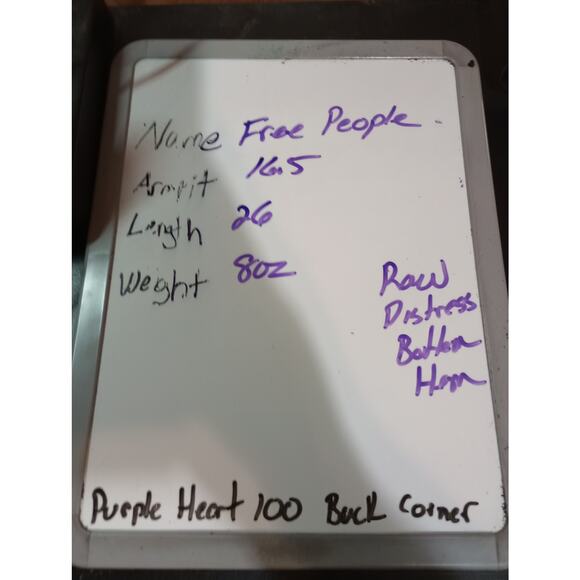 Name Free People
Armpit 16.5
Length 26
Weight 8oz
Raw
Distress
Bottom
Hem
Purple Heart 100 Buck Corner